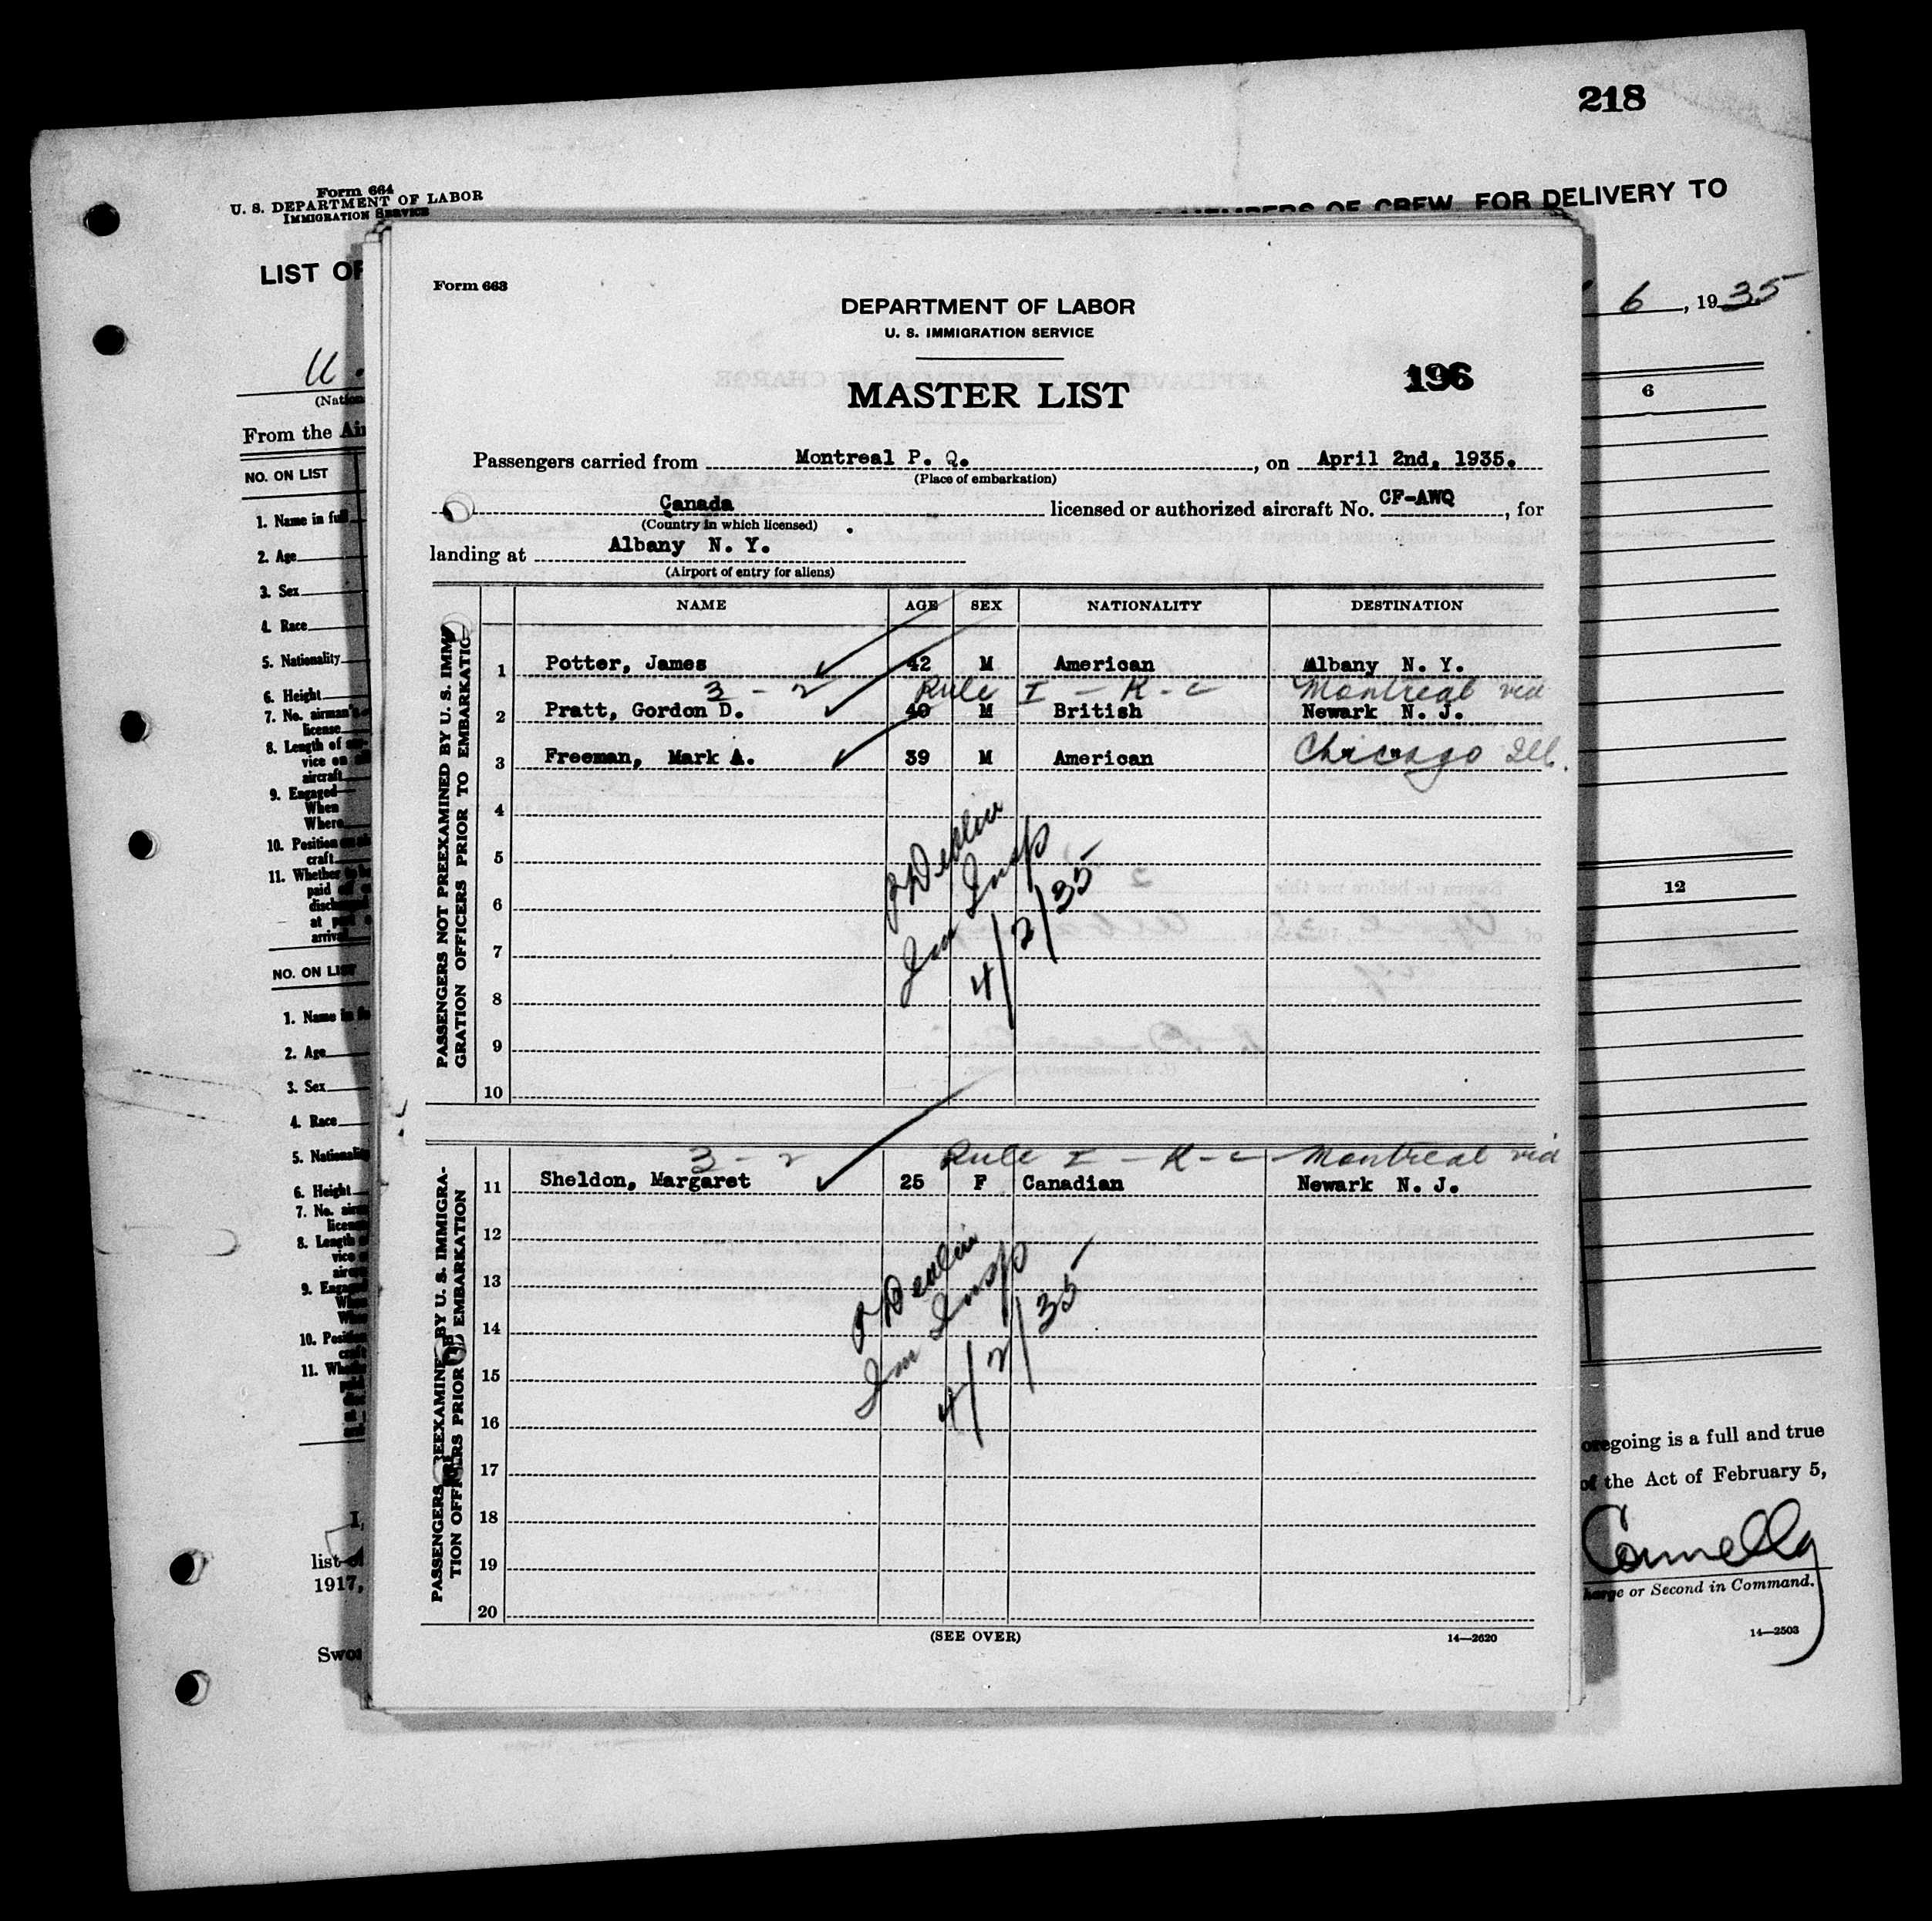 218
Form 664
U. S. DEPARTMENT OF LABOR
IMMIGRATION SERVICE
MEMBERS OF CREW, FOR DELIVERY TO
LIST OF
6, 1935
U.
From the Air
NO. ON LIST
1. Name in full
2. Age
3. Sex
4. Race
5. Nationality
6. Height
7. No. airman's
license
8. Length of
vice on
aircraft
9. Engaged
When
Where
10. Position
craft
11. Whether
paid
at
arrival
NO. ON LIST
1. Name in
2. Age
3. Sex
4. Race
5. Nationality
6. Height
7. No.
8. Length
vice
9.
10.
11.
I,
list
1917,
6
12
foregoing is a full and true
of the Act of February 5,
Connelly
or Second in Command.
14—2503
Form 663
DEPARTMENT OF LABOR
U. S. IMMIGRATION SERVICE
MASTER LIST
196
Passengers carried from Montreal P. Q., on April 2nd, 1935.
(Place of embarkation)
Canada licensed or authorized aircraft No. CF-AWQ, for
(Country in which licensed)
landing at Albany N. Y.
(Airport of entry for aliens)
NAME AGE SEX NATIONALITY DESTINATION
PASSENGERS NOT PREEXAMINED BY U. S. IMMI-
GRATION OFFICERS PRIOR TO EMBARKATION
1 Potter, James 42 M American Albany N. Y.
3 - 2 Rule I - K - c Montreal via
2 Pratt, Gordon D. 40 M British Newark N. J.
3 Freeman, Mark A. 39 M American Chicago Ill.
4
5
6
7
8
9
10
Devlin
Im Insp
4/2/35
PASSENGERS PREEXAMINED BY U. S. IMMIGRA-
TION OFFICERS PRIOR TO EMBARKATION
3 - 2 Rule I - K - c - Montreal via
11 Sheldon, Margaret 25 F Canadian Newark N. J.
12
13
14
15
16
17
18
19
20
Devlin
Im Insp
4/2/35
(SEE OVER)
14—2620